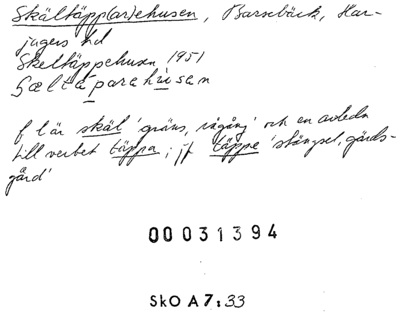 Skältäpp(ar)ehusen, Barsebäck, Har-
jagers hd
Skeltäppehusen 1951
f l är skäl 'gräns, rågång' och en avledn
till verbet täppa; jf täppe 'stängsel, gärds-
gård'
00031394
SkO A7:33